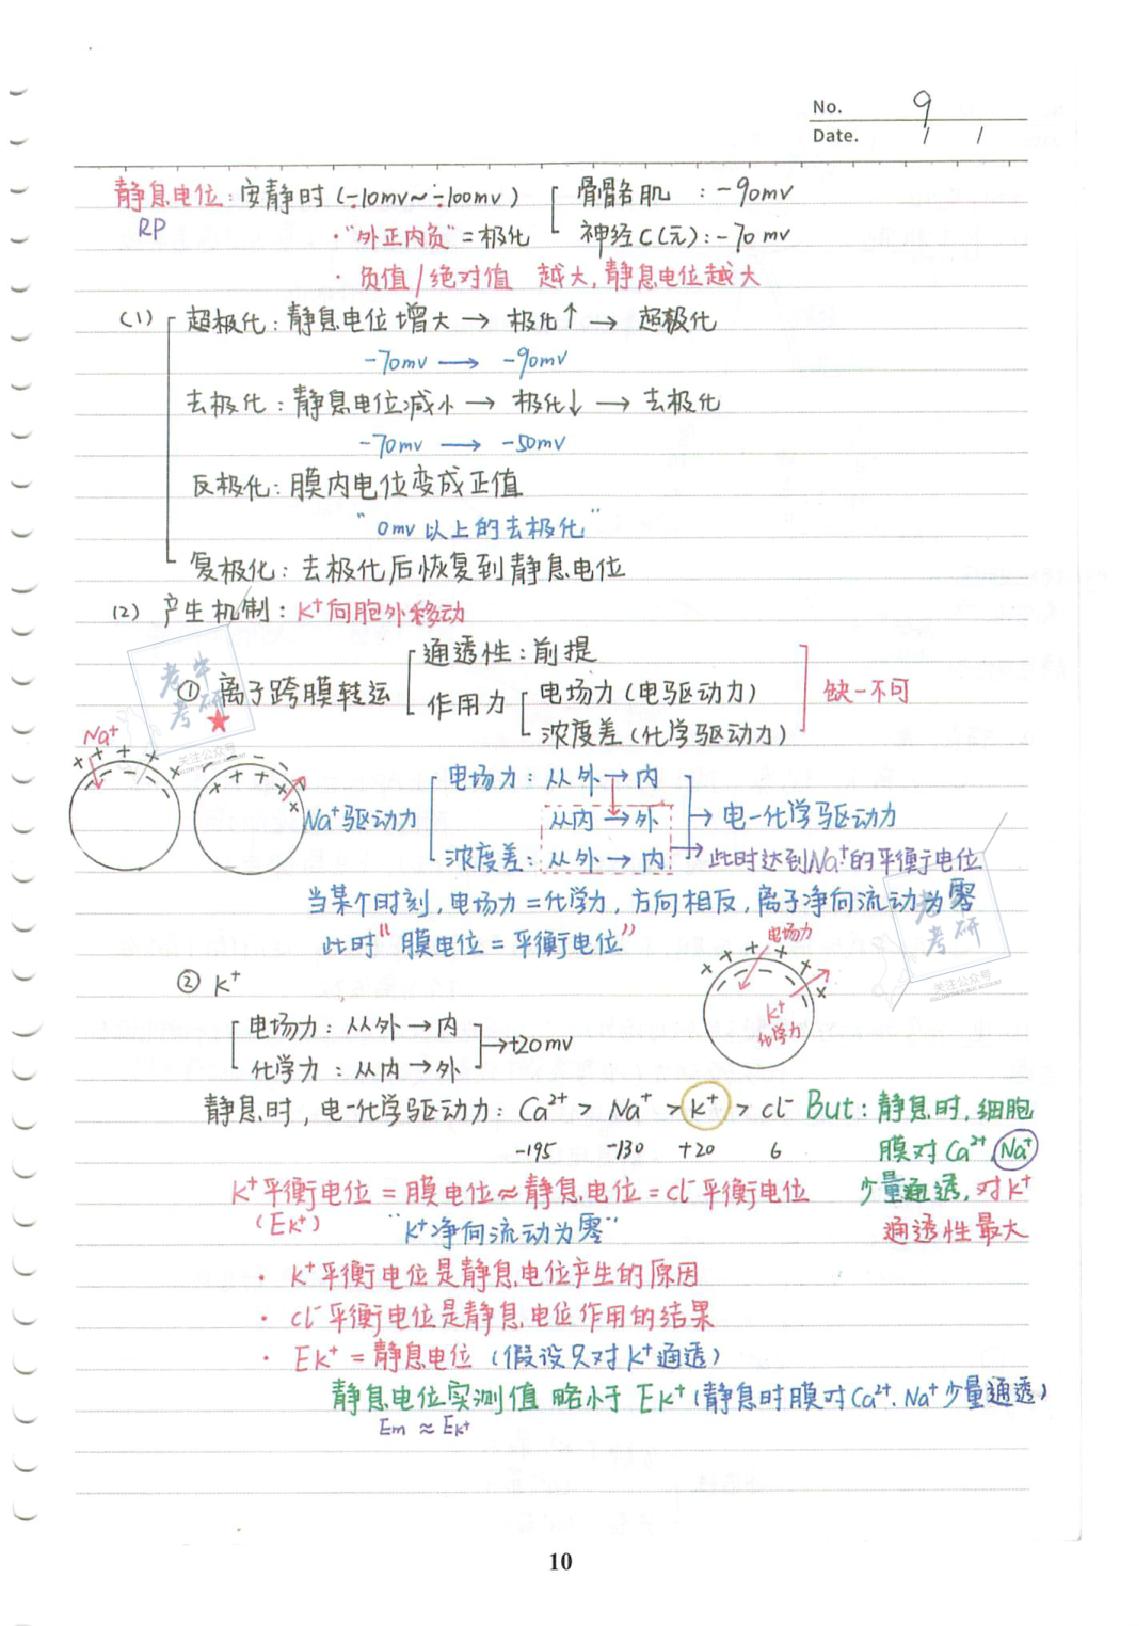 No. 9
Date. / /
静息电位：安静时（-10mv～-100mv） 骨骼肌：-90mv
RP ·“外正内负”=极化 神经C(元)：-70mv
· 负值/绝对值 越大，静息电位越大
(1) 超极化：静息电位增大 → 极化↑ → 超极化
-70mv → -90mv
去极化：静息电位减小 → 极化↓ → 去极化
-70mv → -50mv
反极化：膜内电位变成正值
“0mv以上的去极化”
复极化：去极化后恢复到静息电位
(2) 产生机制：K⁺向胞外移动
通透性：前提
① 离子跨膜转运 作用力 电场力（电驱动力） 缺一不可
★ 浓度差（化学驱动力）
老牛考研
关注公众号
Na⁺
电场力：从外→内
Na⁺驱动力 从内→外 → 电-化学驱动力
浓度差：从外→内 → 此时达到Na⁺的平衡电位
当某个时刻，电场力=化学力，方向相反，离子净向流动为零
此时“膜电位=平衡电位”
老牛考研
关注公众号
电场力
K⁺
化学力
② K⁺
电场力：从外→内
→+20mv
化学力：从内→外
静息时，电-化学驱动力：Ca²⁺ > Na⁺ > K⁺ > cl⁻ But：静息时，细胞
-195 -130 +20 6 膜对Ca²⁺、Na⁺
K⁺平衡电位=膜电位≈静息电位=cl⁻平衡电位 少量通透，对K⁺
（EK⁺） “K⁺净向流动为零” 通透性最大
· K⁺平衡电位是静息电位产生的原因
· cl⁻平衡电位是静息电位作用的结果
· EK⁺=静息电位（假设只对K⁺通透）
静息电位实测值 略小于 EK⁺（静息时膜对Ca²⁺、Na⁺少量通透）
Em ≈ EK⁺
10